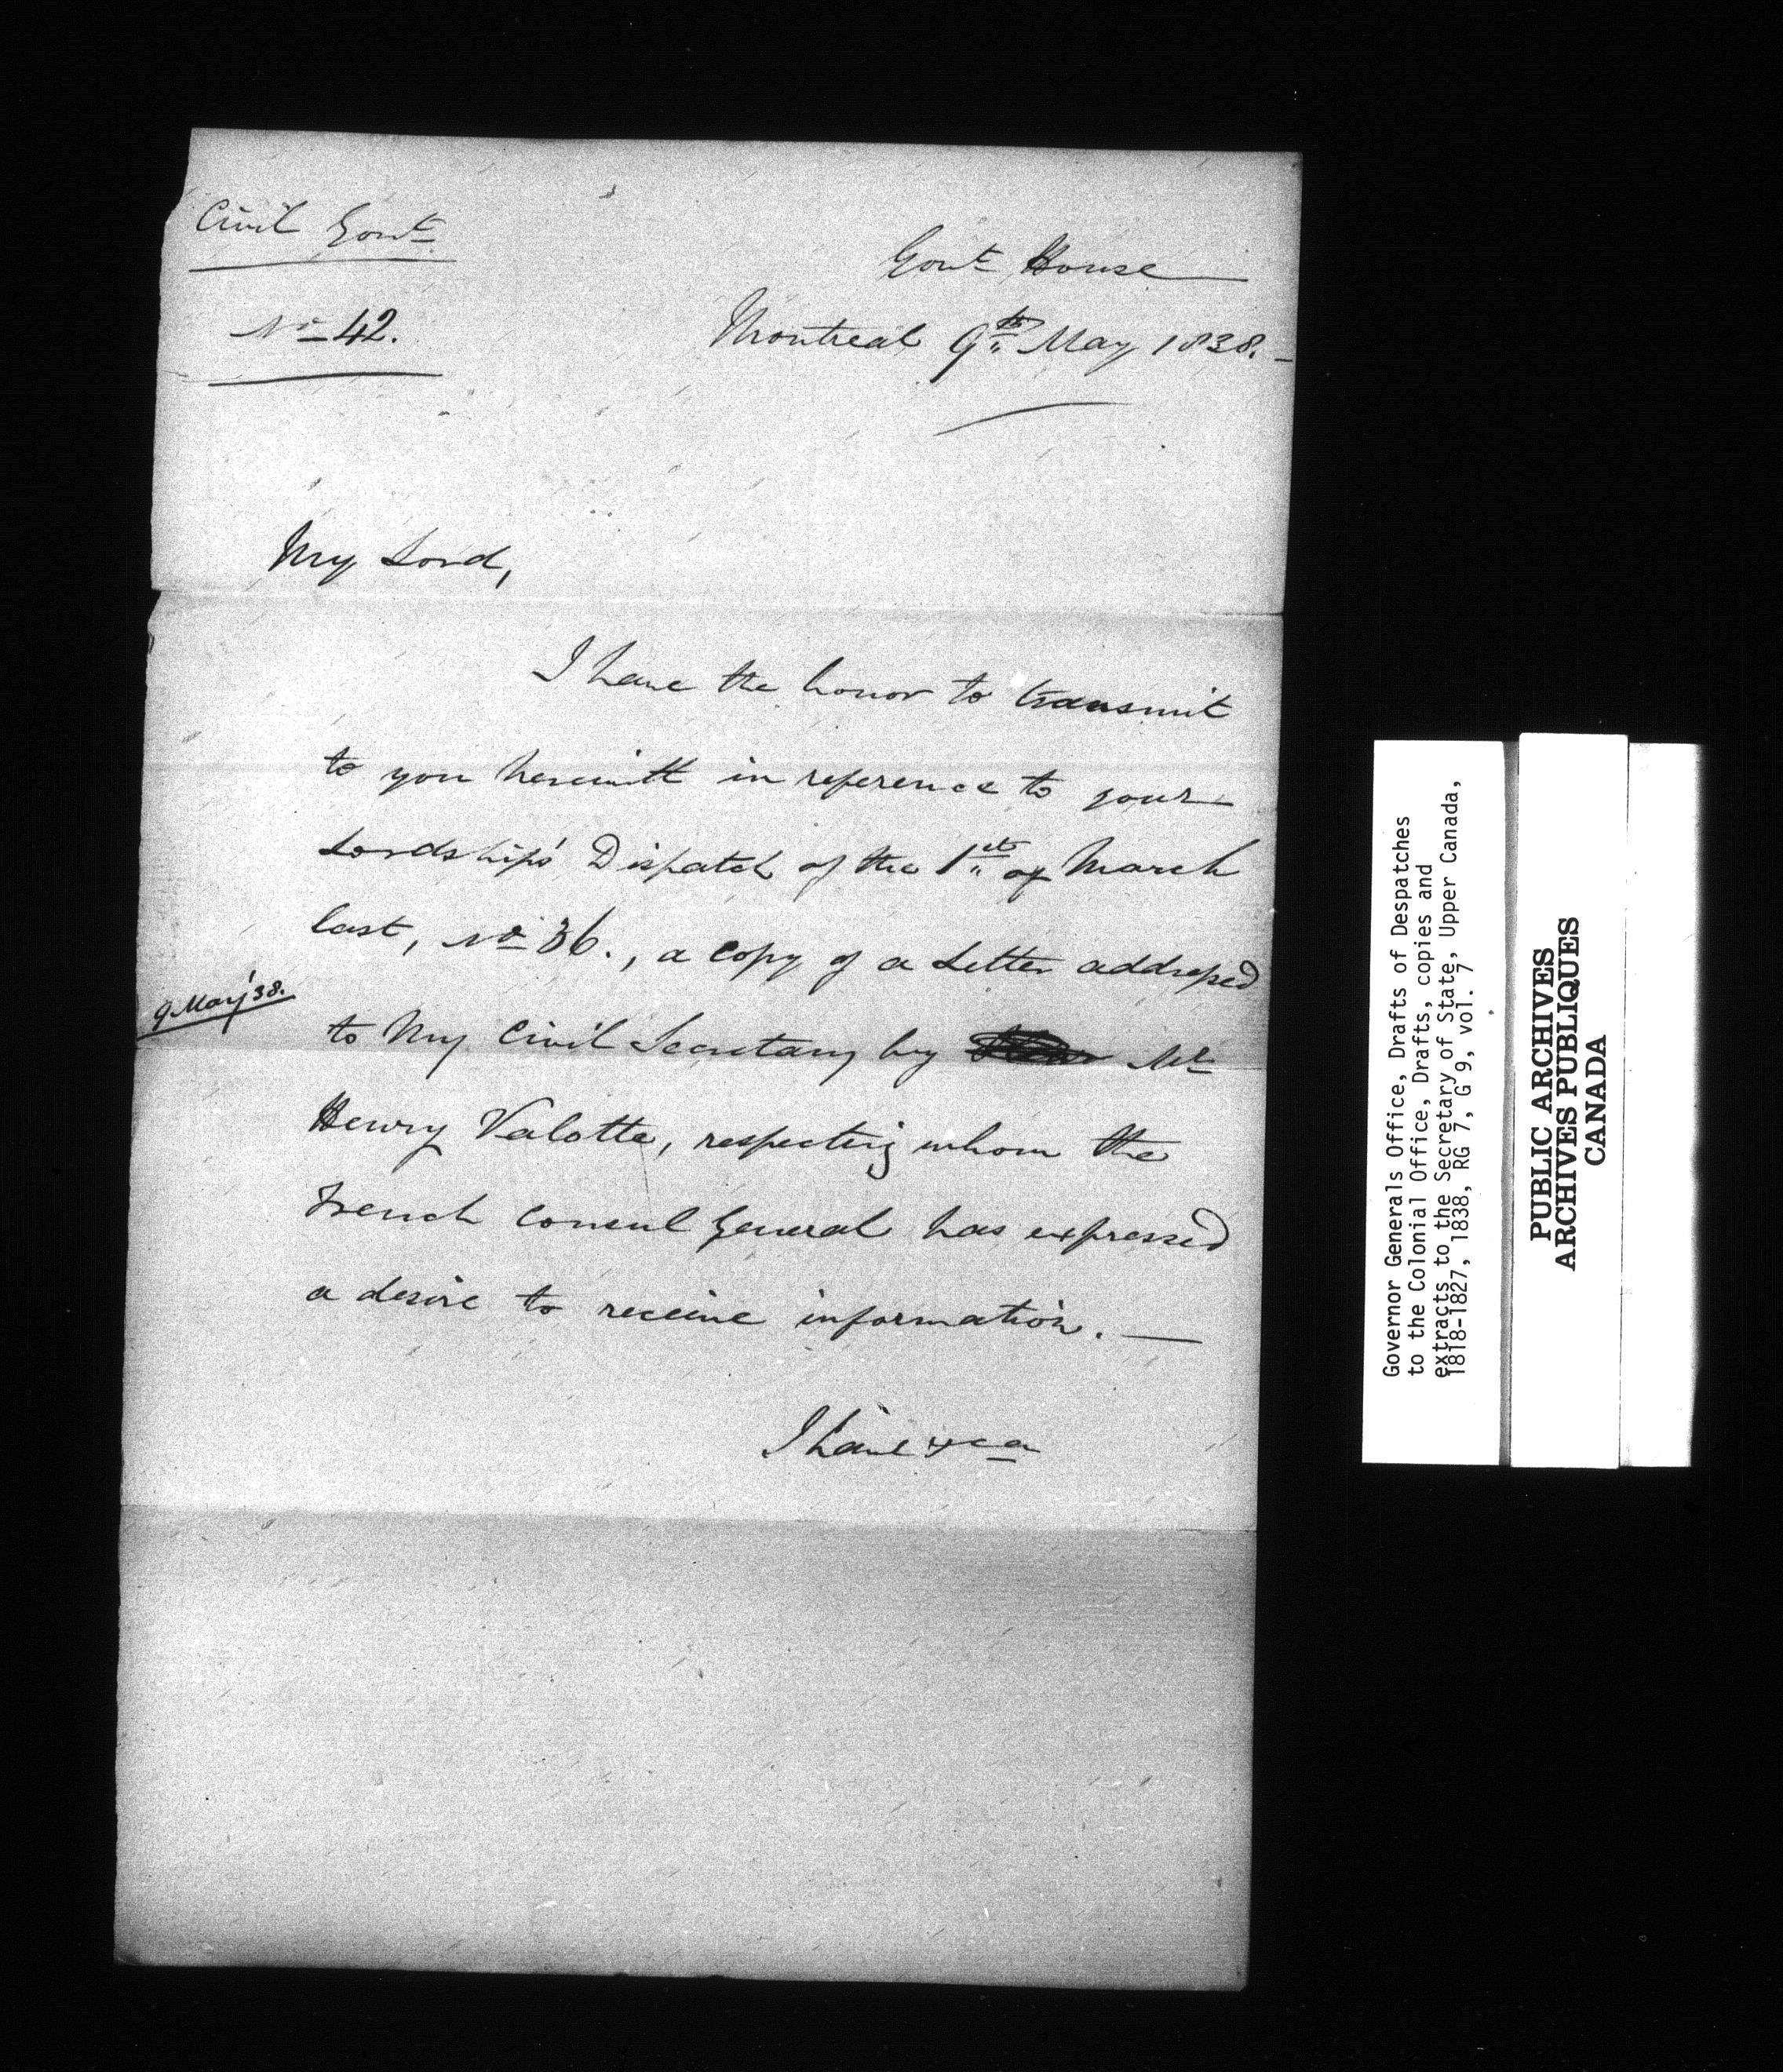 Civil Govt.
No 42.
Govt House
Montreal 9th May 1838.
My Lord,
I have the honor to transmit
to you herewith in reference to your
Lordship's Dispatch of the 1st of March
last, No 36., a Copy of a Letter addressed
9 May '38.
to My Civil Secretary by Mr
Henry Valotte, respecting whom the
French Consul General has expressed
a desire to receive information.
I have &ca
Governor Generals Office, Drafts of Despatches
to the Colonial Office, Drafts, copies and
extracts to the Secretary of State, Upper Canada,
1818-1827, 1838, RG 7, G 9, vol. 7
PUBLIC ARCHIVES
ARCHIVES PUBLIQUES
CANADA